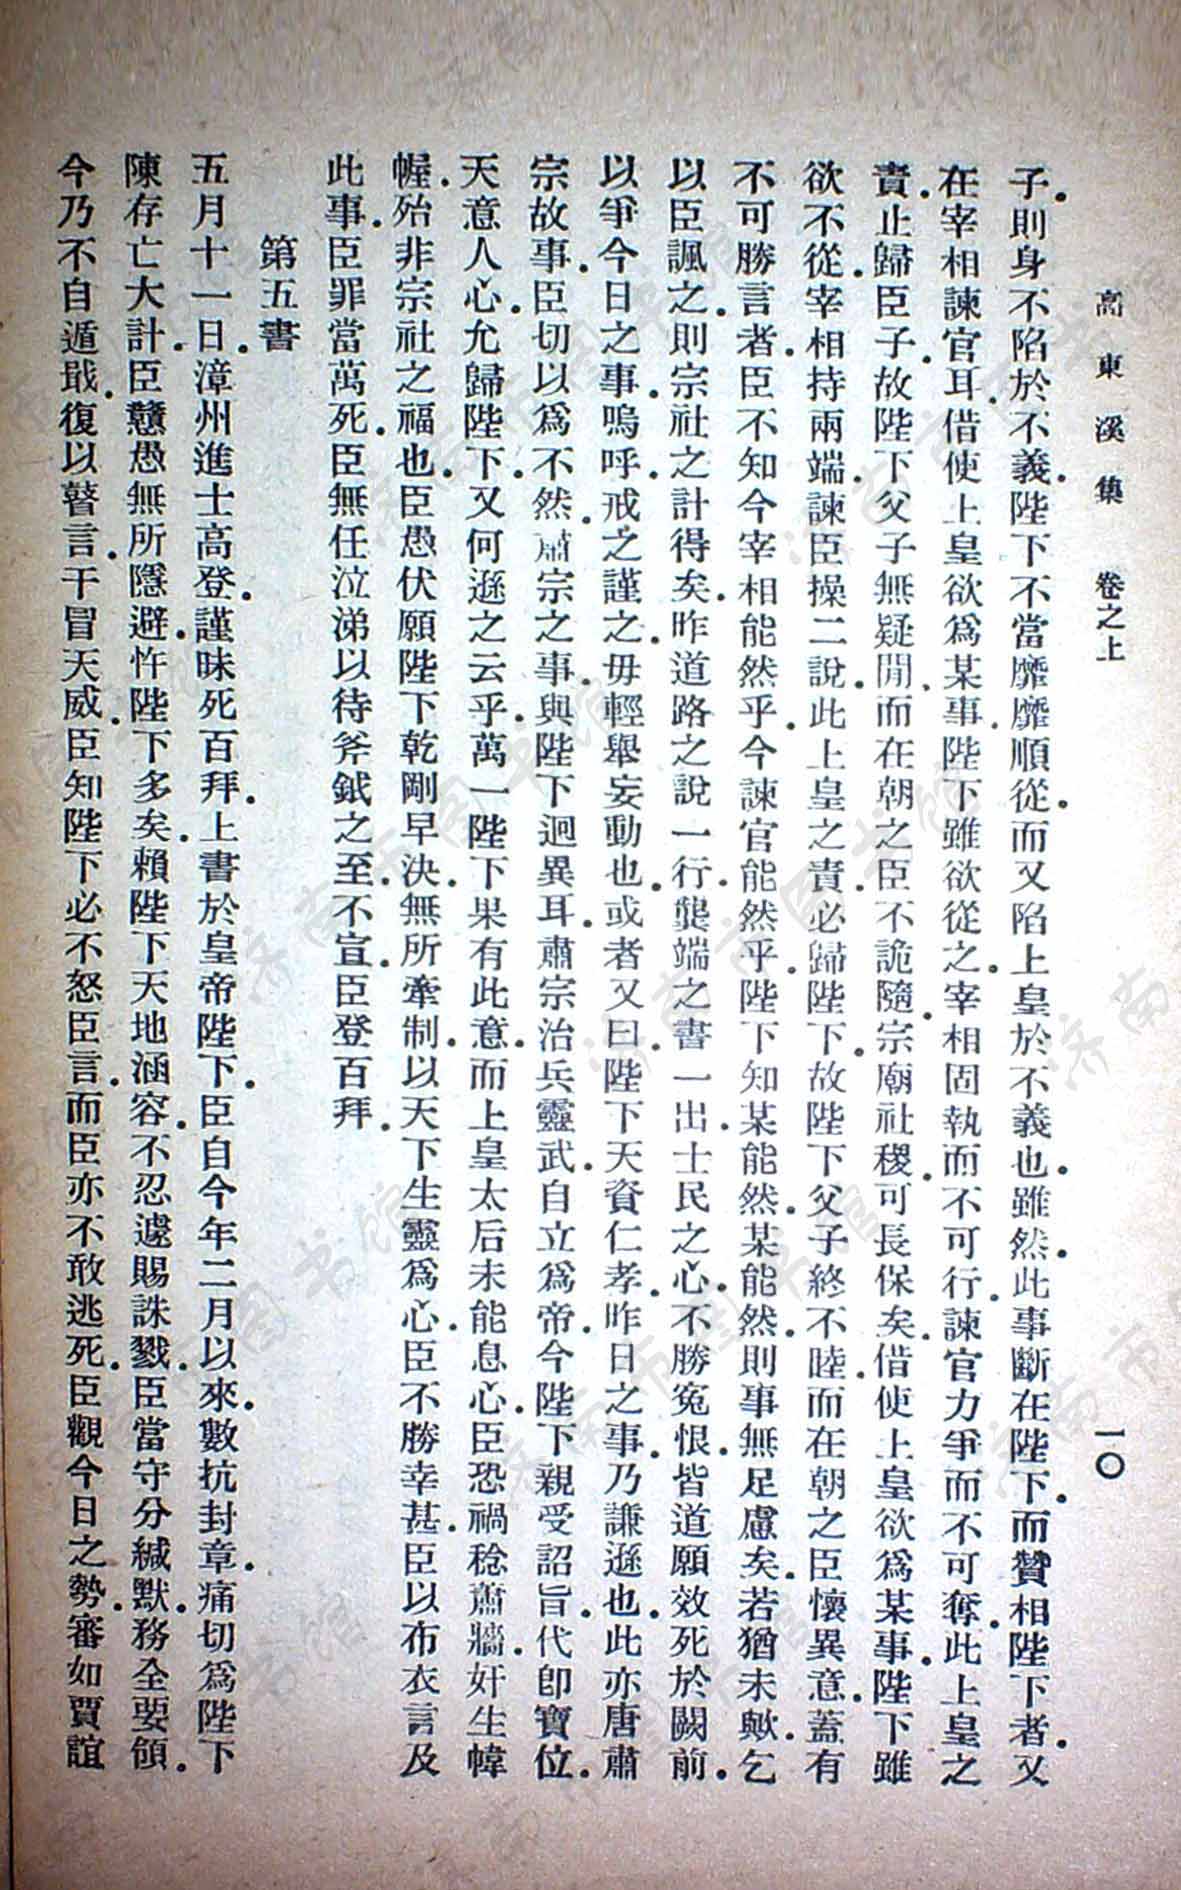 高東溪集 卷之上 一〇
子.則身不陷於不義.陛下不當靡靡順從.而又陷上皇於不義也.雖然.此事斷在陛下.而贊相陛下者.又
在宰相諫官耳.借使上皇欲爲某事.陛下雖欲從之.宰相固執而不可行.諫官力爭而不可奪.此上皇之
責.止歸臣子.故陛下父子無疑閒.而在朝之臣不詭隨.宗廟社稷.可長保矣.借使上皇欲爲某事.陛下雖
欲不從.宰相持兩端.諫臣操二說.此上皇之責.必歸陛下.故陛下父子終不睦.而在朝之臣懷異意.蓋有
不可勝言者.臣不知今宰相能然乎.今諫官能然乎.陛下知某能然.某能然.則事無足慮矣.若猶未歟.乞
以臣諷之.則宗社之計得矣.昨道路之說一行.龔端之書一出.士民之心.不勝寃恨.皆道願效死於闕前.
以爭今日之事.嗚呼.戒之謹之.毋輕舉妄動也.或者又曰.陛下天資仁孝.昨日之事.乃謙遜也.此亦唐肅
宗故事.臣切以爲不然.肅宗之事.與陛下迥異耳.肅宗治兵靈武.自立爲帝.今陛下親受詔旨.代卽寶位.
天意人心.允歸陛下.又何遜之云乎.萬一陛下果有此意.而上皇太后未能息心.臣恐禍稔蕭牆.奸生幃
幄.殆非宗社之福也.臣愚伏願陛下乾剛早決.無所牽制.以天下生靈爲心.臣不勝幸甚.臣以布衣言及
此事.臣罪當萬死.臣無任泣涕以待斧鉞之至.不宣.臣登百拜.
第五書
五月十一日.漳州進士高登.謹昧死百拜.上書於皇帝陛下.臣自今年二月以來.數抗封章.痛切爲陛下
陳存亡大計.臣戇愚無所隱避.忤陛下多矣.賴陛下天地涵容.不忍遽賜誅戮.臣當守分緘默.務全要領.
今乃不自遁戢.復以瞽言.干冒天威.臣知陛下必不怒臣言.而臣亦不敢逃死.臣觀今日之勢.審如賈誼